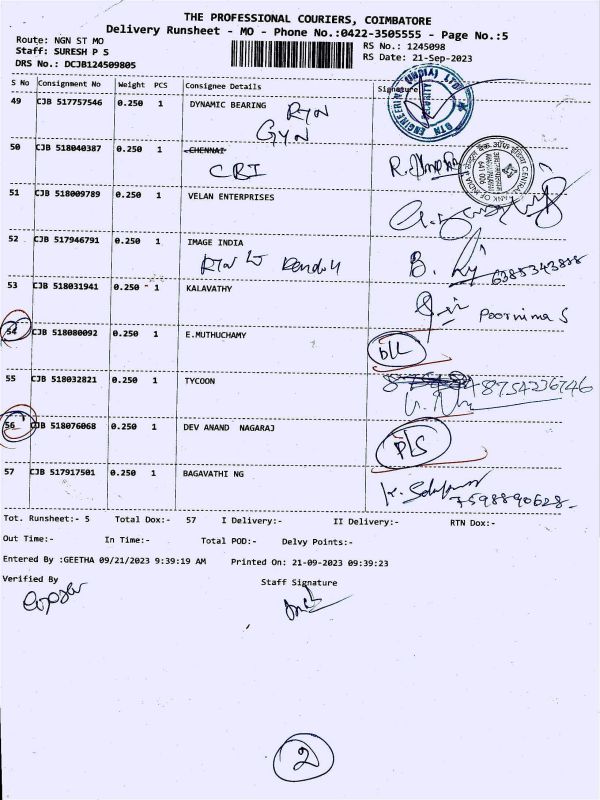 THE PROFESSIONAL COURIERS, COIMBATORE
Delivery Runsheet - MO - Phone No.:0422-3505555 - Page No.:5
Route: NGN ST MO
Staff: SURESH P S
DRS No.: DCJB124509805
RS No.: 1245098
RS Date: 21-Sep-2023
S No Consignment No Weight PCS Consignee Details Signature
49 CJB 517757546 0.250 1 DYNAMIC BEARING
50 CJB 518040387 0.250 1 CHENNAI
CBI
51 CJB 518009789 0.250 1 VELAN ENTERPRISES
52 CJB 517946791 0.250 1 IMAGE INDIA
53 CJB 518031941 0.250 1 KALAVATHY
Poornima S
54 CJB 518080092 0.250 1 E.MUTHUCHAMY
D/L
55 CJB 518032821 0.250 1 TYCOON
8754236746
56 CJB 518076068 0.250 1 DEV ANAND NAGARAJ
P/S
57 CJB 517917501 0.250 1 BAGAVATHI NG
7598890628
Tot. Runsheet:- 5 Total Dox:- 57 I Delivery:- II Delivery:- RTN Dox:-
Out Time:- In Time:- Total POD:- Delvy Points:-
Entered By :GEETHA 09/21/2023 9:39:19 AM Printed On: 21-09-2023 09:39:23
Verified By Staff Signature
2